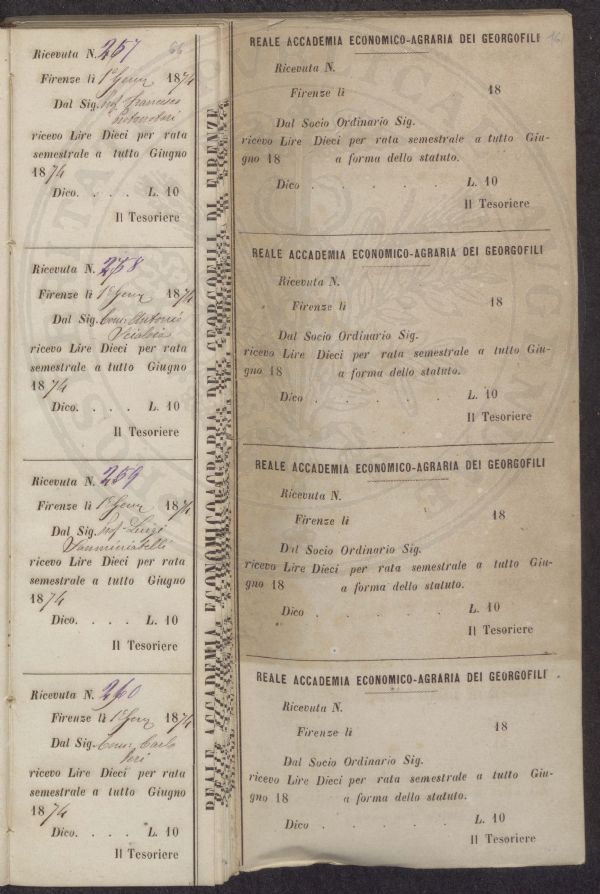 Ricevuta N. 257
66
Firenze lì 1° Genn 1874
Dal Sig. Prof Francesco
ricevo Lire Dieci per rata
semestrale a tutto Giugno
1874
Dico. . . . L. 10
Il Tesoriere
Ricevuta N. 258
Firenze lì 1° Genn 1874
Dal Sig. Antonio
ricevo Lire Dieci per rata
semestrale a tutto Giugno
1874
Dico. . . . L. 10
Il Tesoriere
Ricevuta N. 259
Firenze lì 1° Genn 1874
Dal Sig. Prof Luigi
Sanminiatelli
ricevo Lire Dieci per rata
semestrale a tutto Giugno
1874
Dico. . . . L. 10
Il Tesoriere
Ricevuta N. 260
Firenze lì 1° Genn 1874
Dal Sig. Comm Carlo
ricevo Lire Dieci per rata
semestrale a tutto Giugno
1874
Dico. . . . L. 10
Il Tesoriere
REALE ACCADEMIA ECONOMICO-AGRARIA DEI GEORGOFILI DI FIRENZE
REALE ACCADEMIA ECONOMICO-AGRARIA DEI GEORGOFILI
Ricevuta N.
Firenze lì 18
Dal Socio Ordinario Sig.
ricevo Lire Dieci per rata semestrale a tutto Giu-
gno 18 a forma dello statuto.
Dico . . . . . L. 10
Il Tesoriere
REALE ACCADEMIA ECONOMICO-AGRARIA DEI GEORGOFILI
Ricevuta N.
Firenze lì 18
Dal Socio Ordinario Sig.
ricevo Lire Dieci per rata semestrale a tutto Giu-
gno 18 a forma dello statuto.
Dico . . . . . L. 10
Il Tesoriere
REALE ACCADEMIA ECONOMICO-AGRARIA DEI GEORGOFILI
Ricevuta N.
Firenze lì 18
Dal Socio Ordinario Sig.
ricevo Lire Dieci per rata semestrale a tutto Giu-
gno 18 a forma dello statuto.
Dico . . . . . L. 10
Il Tesoriere
REALE ACCADEMIA ECONOMICO-AGRARIA DEI GEORGOFILI
Ricevuta N.
Firenze lì 18
Dal Socio Ordinario Sig.
ricevo Lire Dieci per rata semestrale a tutto Giu-
gno 18 a forma dello statuto.
Dico . . . . . L. 10
Il Tesoriere